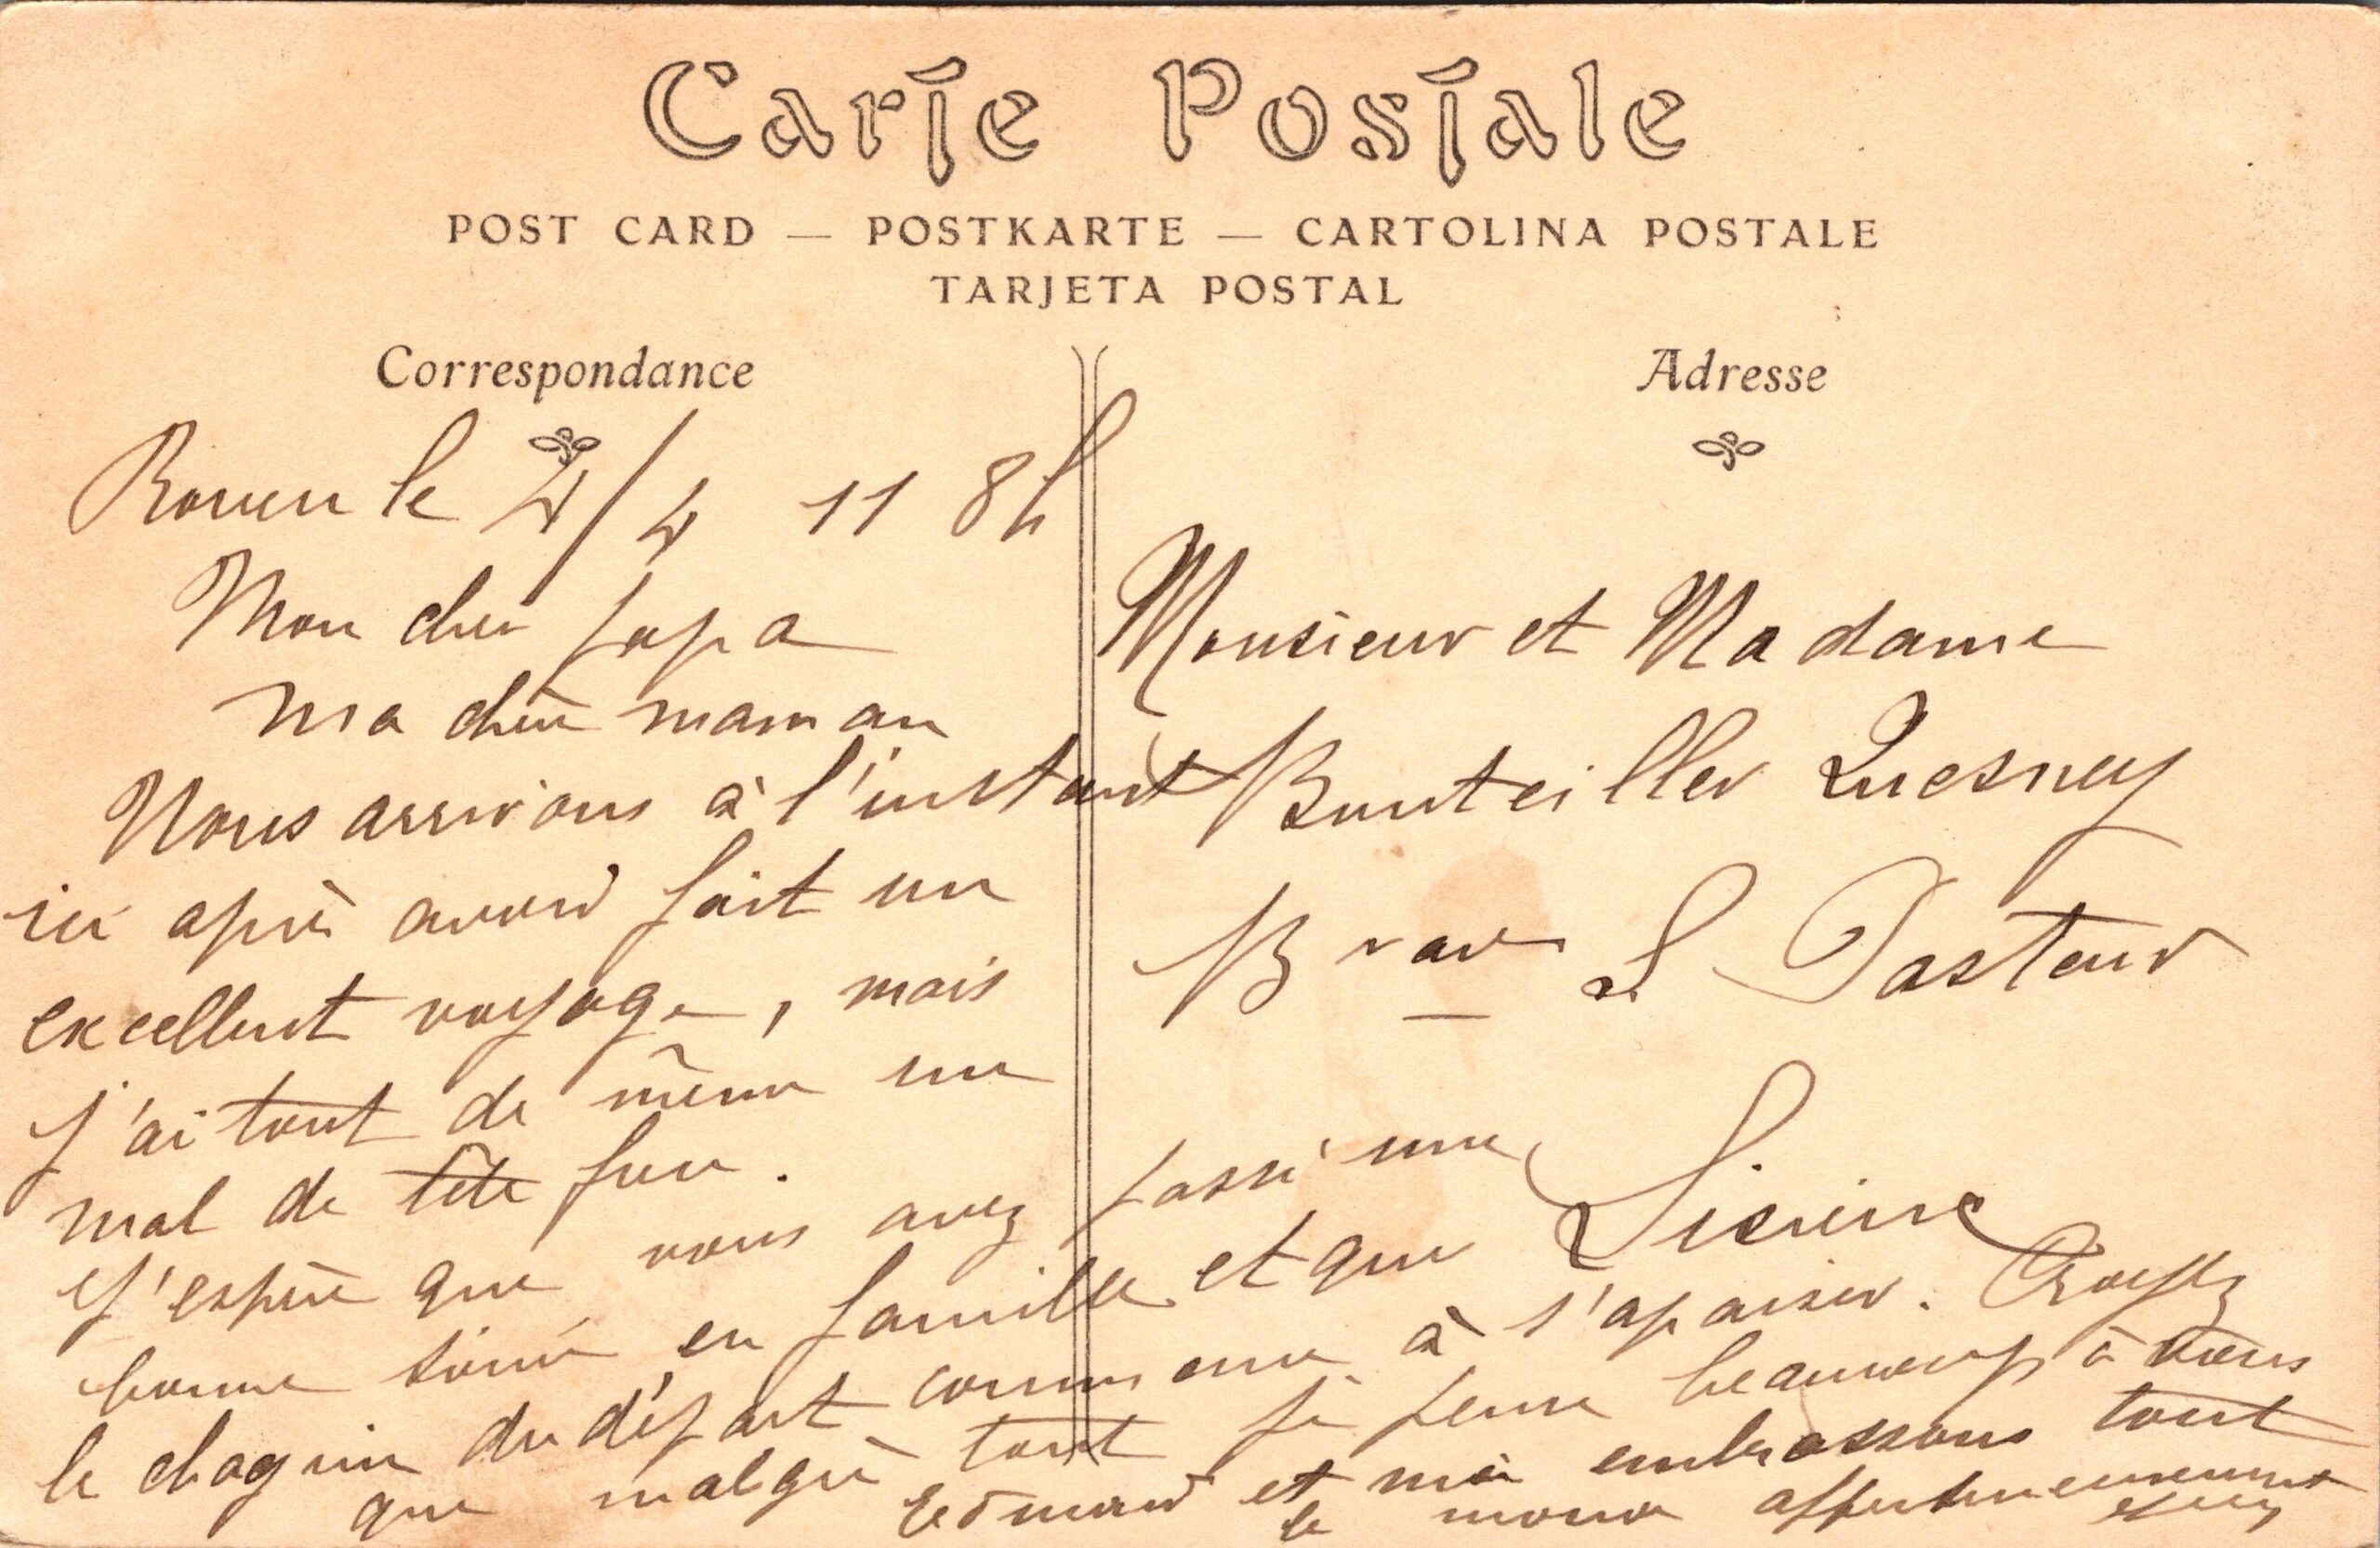 Carte Postale
POST CARD — POSTKARTE — CARTOLINA POSTALE
TARJETA POSTAL
Correspondance
Rouen le 4/4 11 8h
Mon cher papa
ma chère maman
Nous arrivons à l'instant
ici après avoir fait un
excellent voyage, mais
j'ai tout de même un
mal de tête fou.
J'espère que vous avez passé une
bonne soirée en famille et que
le chagrin du départ commence à s'apaiser. Croyez
que malgré tout je pense beaucoup à vous
Edouard et moi embrassons tout
le monde affectueusement
Adresse
Monsieur et Madame
Bouteiller Quesney
B Pasteur
Lisieux